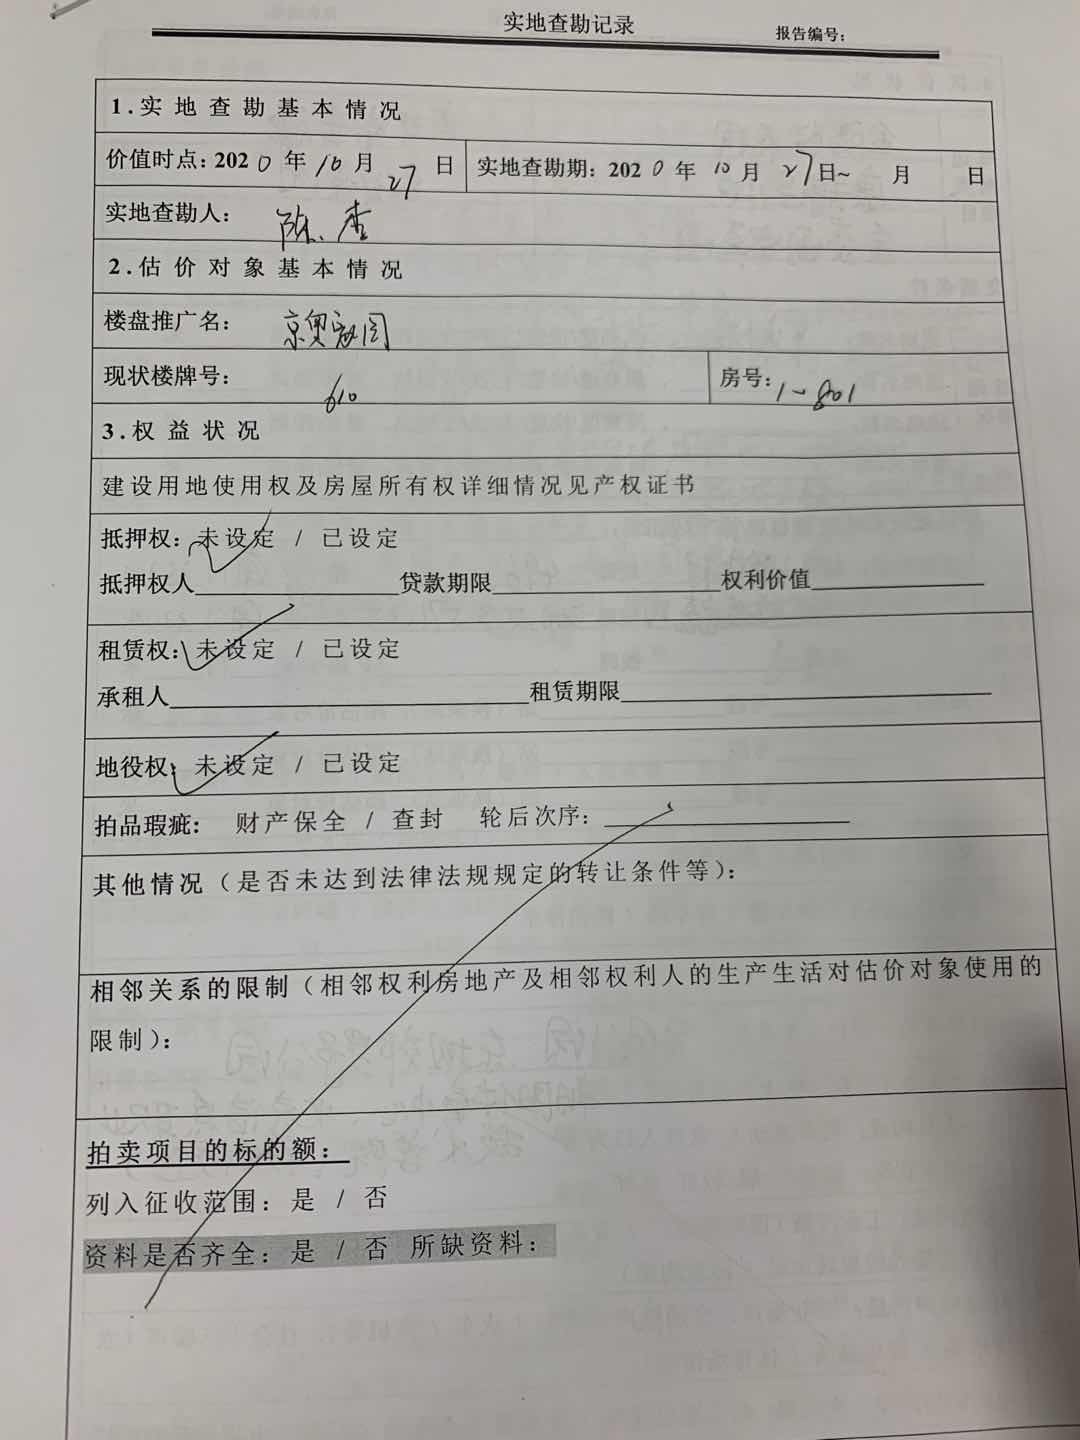 实地查勘记录
报告编号：
1.实地查勘基本情况
价值时点：2020年10月27日 实地查勘期：2020年10月27日~ 月 日
实地查勘人： 陈、李
2.估价对象基本情况
楼盘推广名： 京奥家园
现状楼牌号： 610 房号：1-801
3.权益状况
建设用地使用权及房屋所有权详细情况见产权证书
抵押权：未设定 / 已设定
抵押权人 贷款期限 权利价值
租赁权：未设定 / 已设定
承租人 租赁期限
地役权：未设定 / 已设定
拍品瑕疵： 财产保全 / 查封 轮后次序：
其他情况（是否未达到法律法规规定的转让条件等）：
相邻关系的限制（相邻权利房地产及相邻权利人的生产生活对估价对象使用的
限制）：
拍卖项目的标的额：
列入征收范围：是 / 否
资料是否齐全：是 / 否 所缺资料：